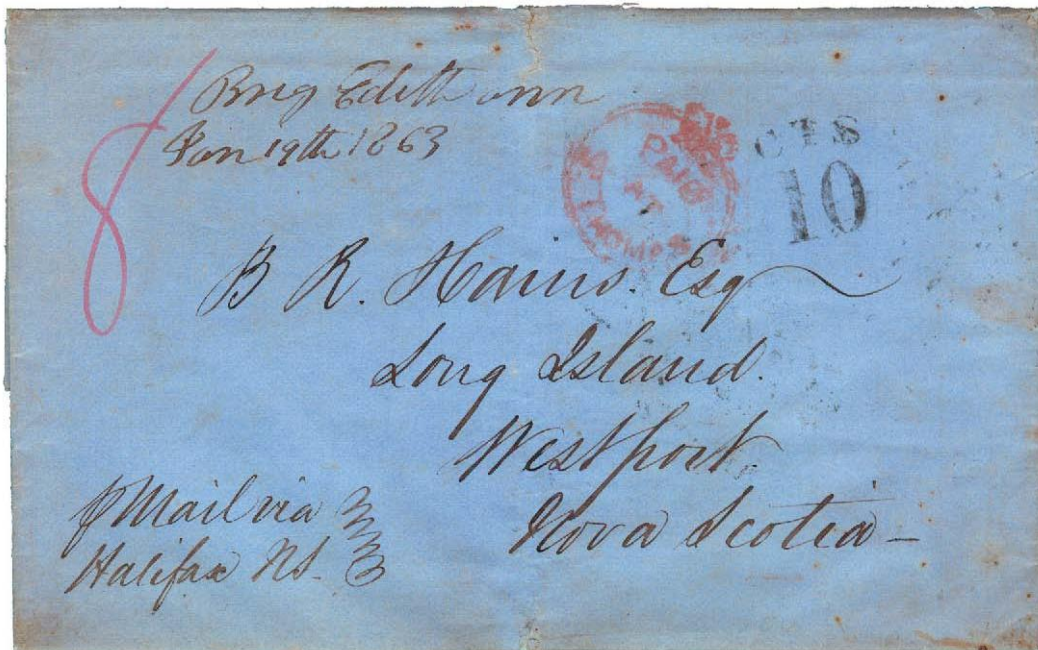 8
Brig Edith Ann
Jan 19th 1863
PAID
AT
ST THOMAS
CTS
10
B R. Hains. Esq
Long Island.
Westport.
Nova Scotia –
p Mail via
Halifax NS.